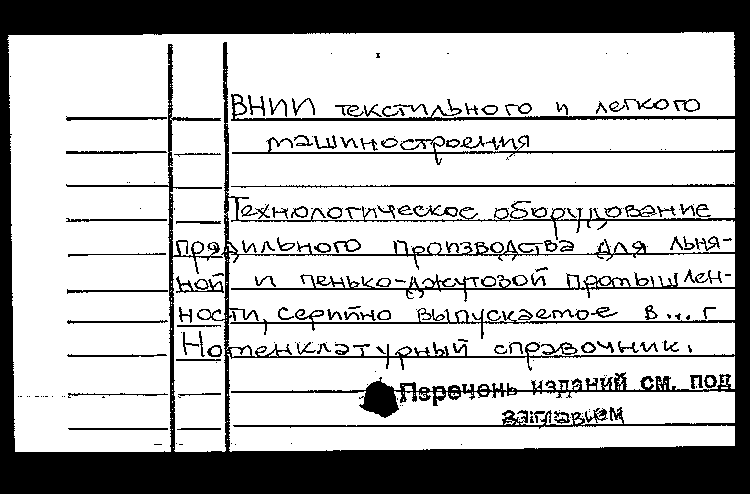 ВНИИ текстильного и легкого
машиностроения
Технологическое оборудование
прядильного производства для льня-
ной и пенько-джутовой промышлен-
ности, серийно выпускаемое в... г
Номенклатурный справочник.
Перечень изданий см. под
заглавием